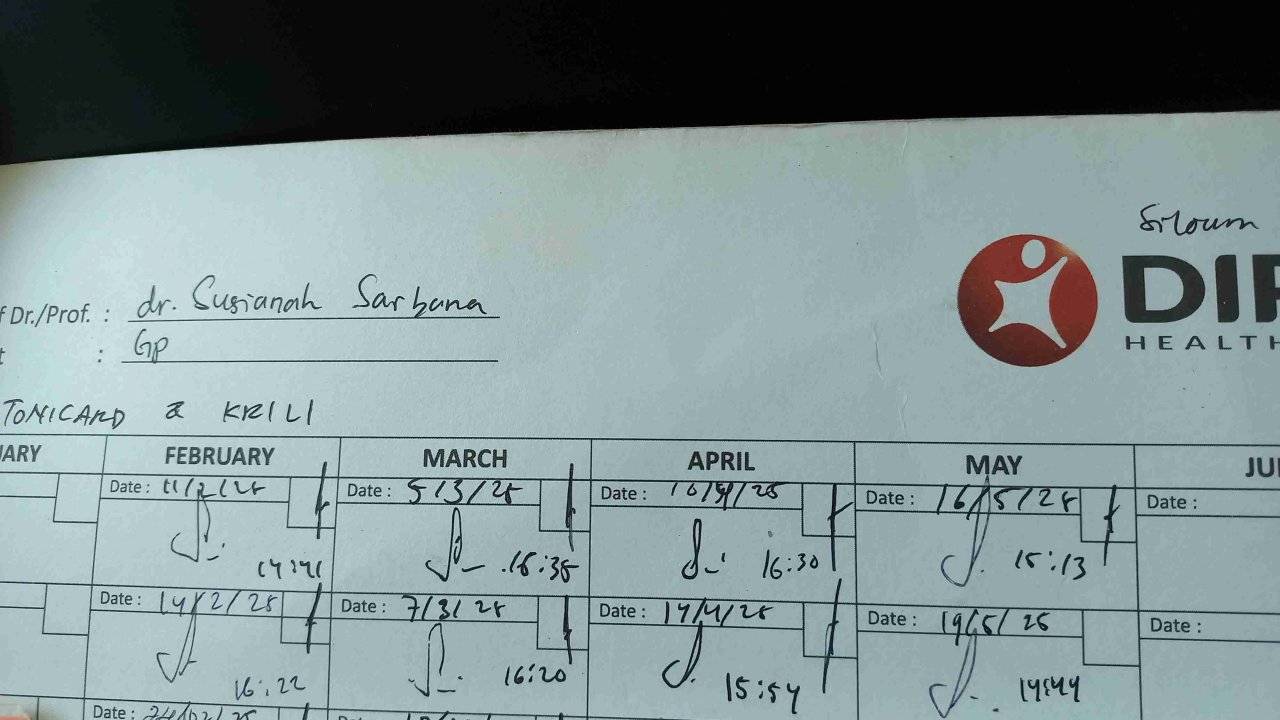 Siloum
DIP
HEALTH
f Dr./Prof. : dr. Susianah Sarbana
t : Gp
TONICARD & KRILI
ARY FEBRUARY MARCH APRIL MAY JU
Date : 11/2/25 Date : 5/3/25 Date : 10/4/25 Date : 16/5/25 Date :
14:41 16:35 16:30 15:13
Date : 14/2/25 Date : 7/3/25 Date : 17/4/25 Date : 19/5/25 Date :
16:22 16:20 15:54 14:44
Date : 24/02/25